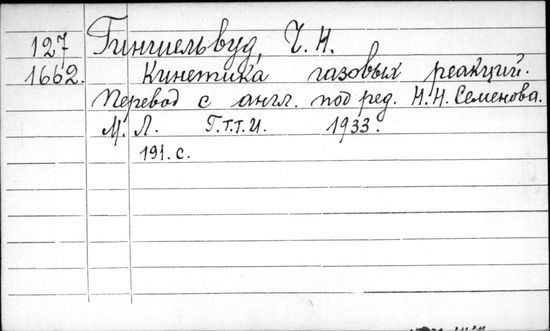 127 Гиншельвуд, Ч. Н.
1662. Кинетика газовых реакций.
Перевод с англ. под ред. Н.Н. Семенова.
М. Л. Г.Т.Т.И. 1933.
191. с.